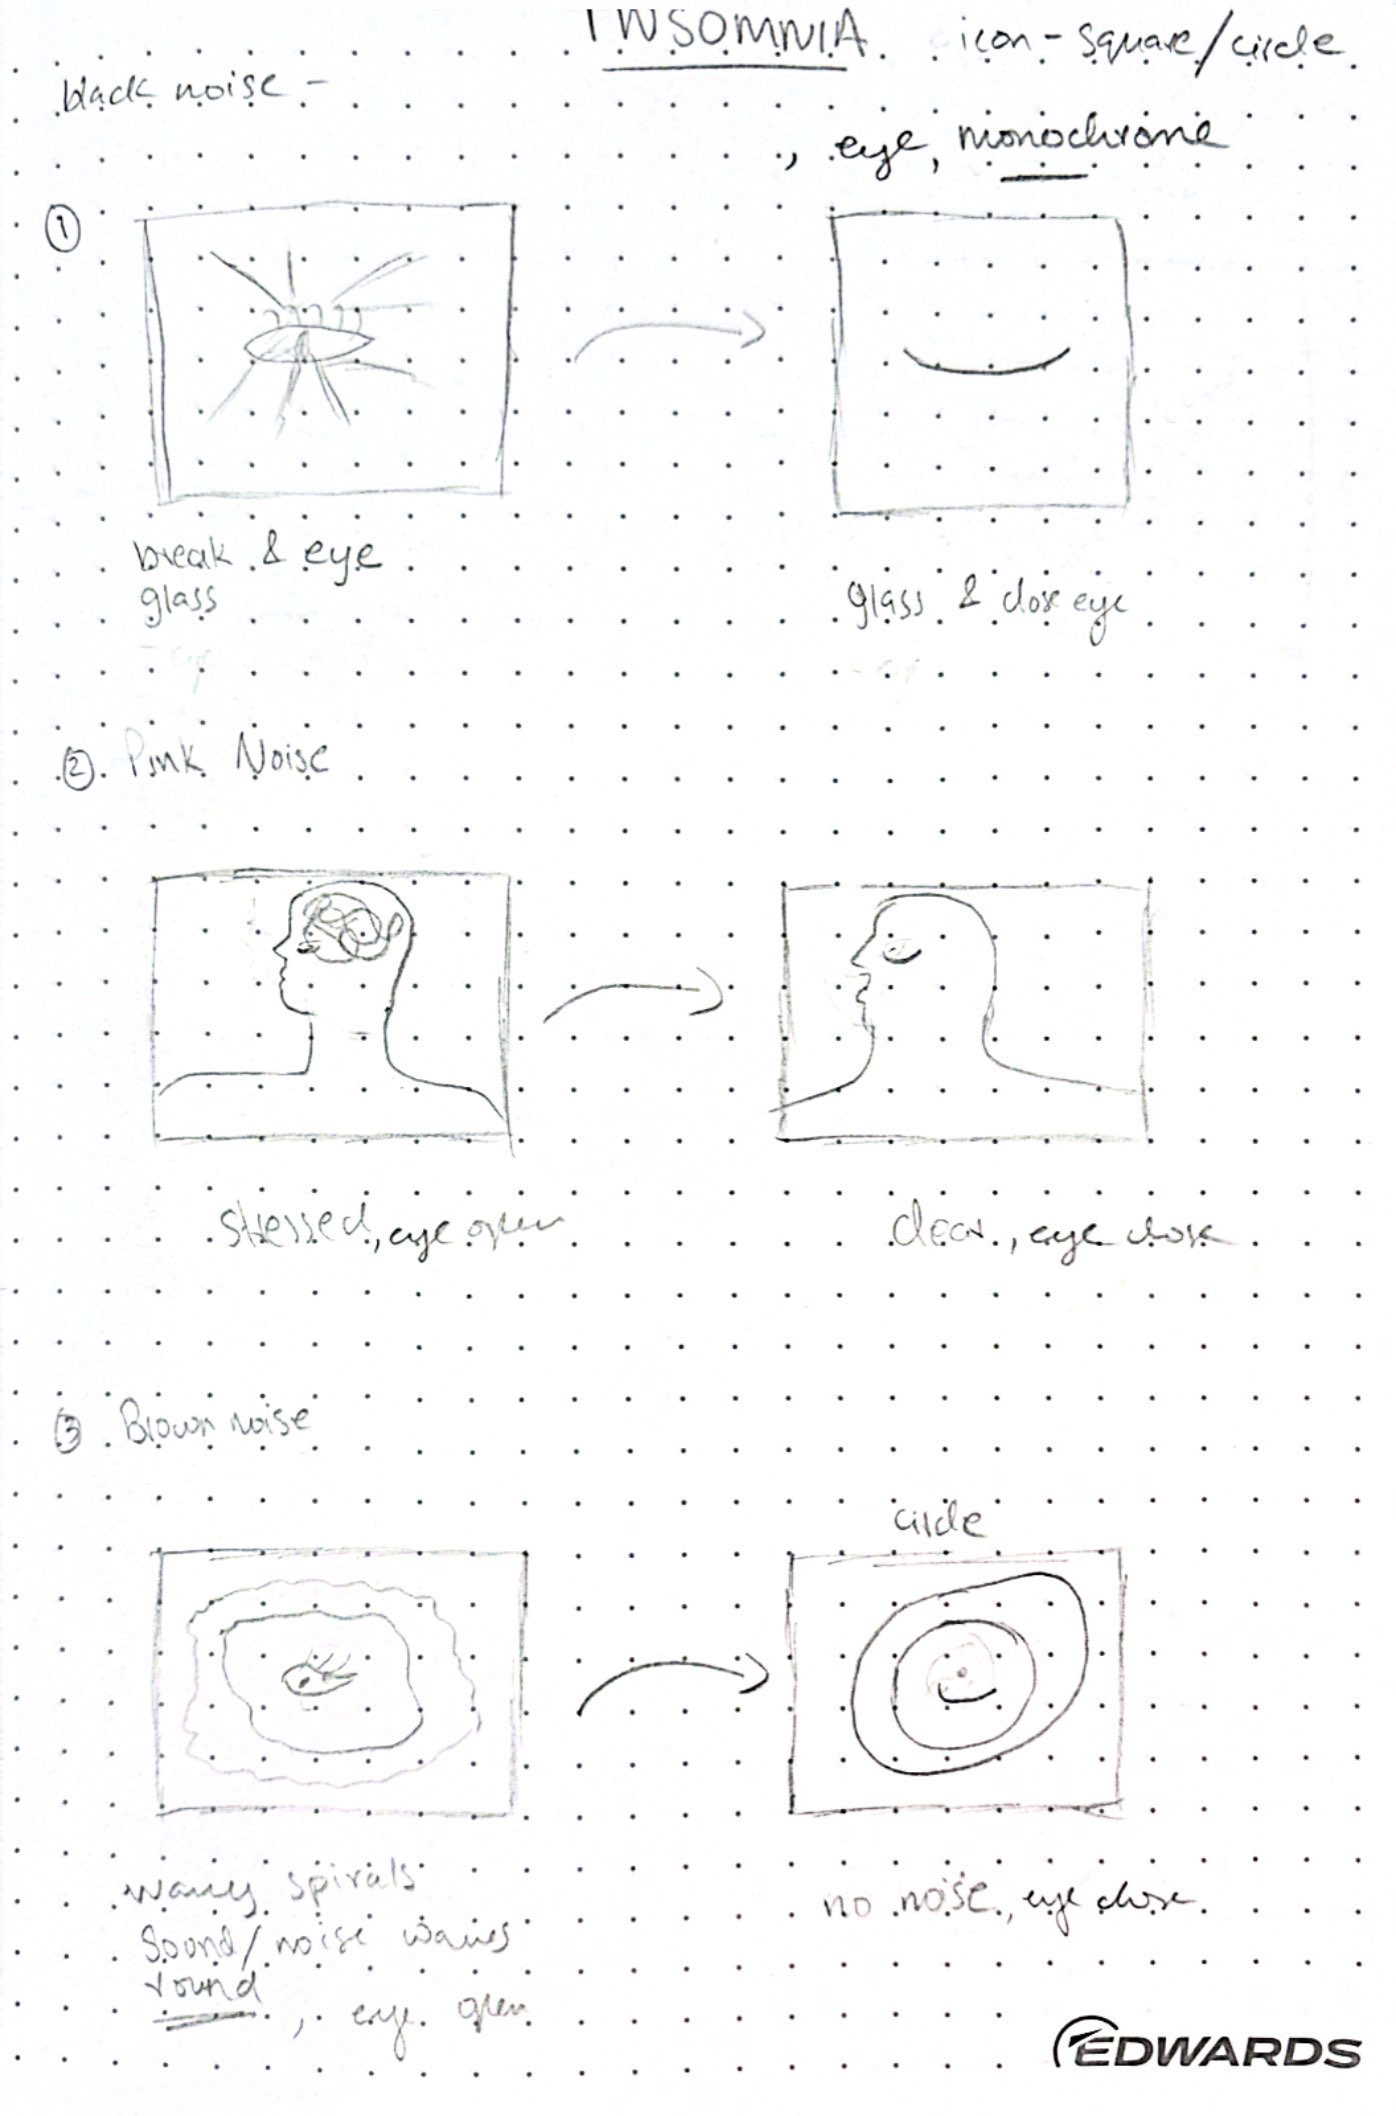 INSOMNIA icon - square/circle
black noise -
, eye, monochrome
①
break & eye
glass
glass & close eye
② Pink Noise
stressed, eye open
clear, eye close
③ Brown noise
circle
wavy spirals
Sound/noise waves
round
, eye open
no noise, eye close
EDWARDS